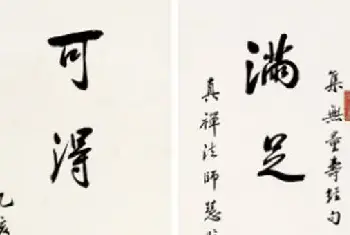 集無量壽經句
滿足
真禪法師慧
可得